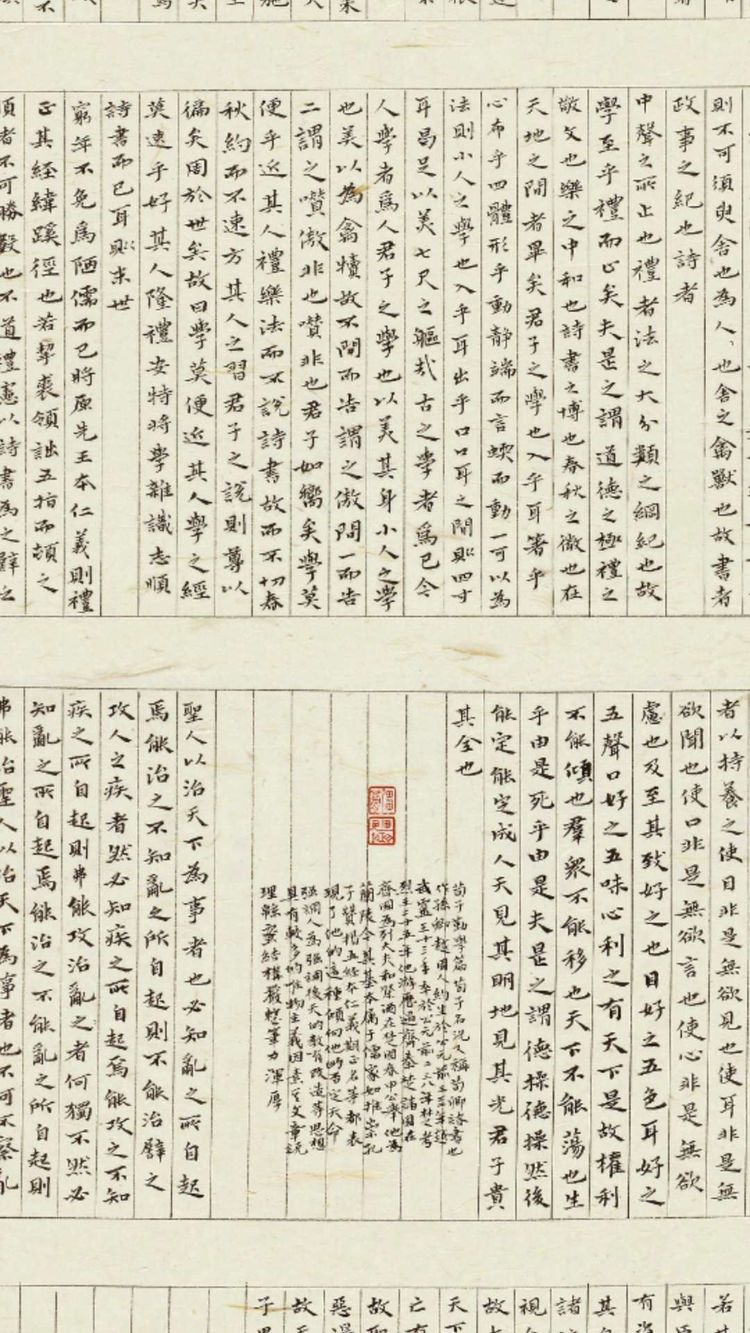 則不可須臾舍也為人、也舍之禽獸也故書者
政事之紀也詩者
中聲之所止也禮者法之大分類之綱紀也故
學至乎禮而止矣夫是之謂道德之極禮之
敬文也樂之中和也詩書之博也春秋之微也在
天地之間者畢矣君子之學也入乎耳箸乎
心布乎四體形乎動靜端而言蝡而動一可以為
法則小人之學也入乎耳出乎口口耳之間則四寸
耳曷足以美七尺之軀哉古之學者為已今
人學者為人君子之學也以美其身小人之學
也美以為禽犢故不問而告謂之傲問一而告
二謂之囋傲非也囋非也君子如嚮矣學莫
便乎近其人禮樂法而不說詩書故而不切春
秋約而不速方其人之習君子之說則尊以
徧矣周於世矣故曰學莫便近其人學之經
莫速乎好其人隆禮安特將學雜識志順
詩書而已耳則末世
窮年不免為陋儒而已將原先王本仁義則禮
正其經緯蹊徑也若挈裘領詘五指而頓之
順者不可勝數也不道禮憲以詩書為之辟之
者以持養之使目非是無欲見也使耳非是無
欲聞也使口非是無欲言也使心非是無欲
慮也及至其致好之也目好之五色耳好之
五聲口好之五味心利之有天下是故權利
不能傾也羣衆不能移也天下不能蕩也生
乎由是死乎由是夫是之謂德操德操然後
能定能定成人天見其明地見其光君子貴
其全也
荀子勸學篇荀子名況又稱荀卿
作孫卿趙國人約生於公元前三
齊國為列大夫和祭酒在楚國春申公舉他為
蘭陵令其基本屬于儒家如推崇孔
子贊揚五經本仁義期正名等都表
現了他的這種傾向他的否定天命
強調人為強調後天的教育改造等思想
具有較多的唯物主義因素至文章說
理縣密結構嚴整筆力渾厚
聖人以治天下為事者也必知亂之所自起
焉能治之不知亂之所自起則不能治譬之
攻人之疾者然必知疾之所自起焉能攻之不知
疾之所自起則弗能攻治亂之者何獨不然必
知亂之所自起焉能治之不能亂之所自起則
弗能治聖人以治天下為事者也不可不察亂